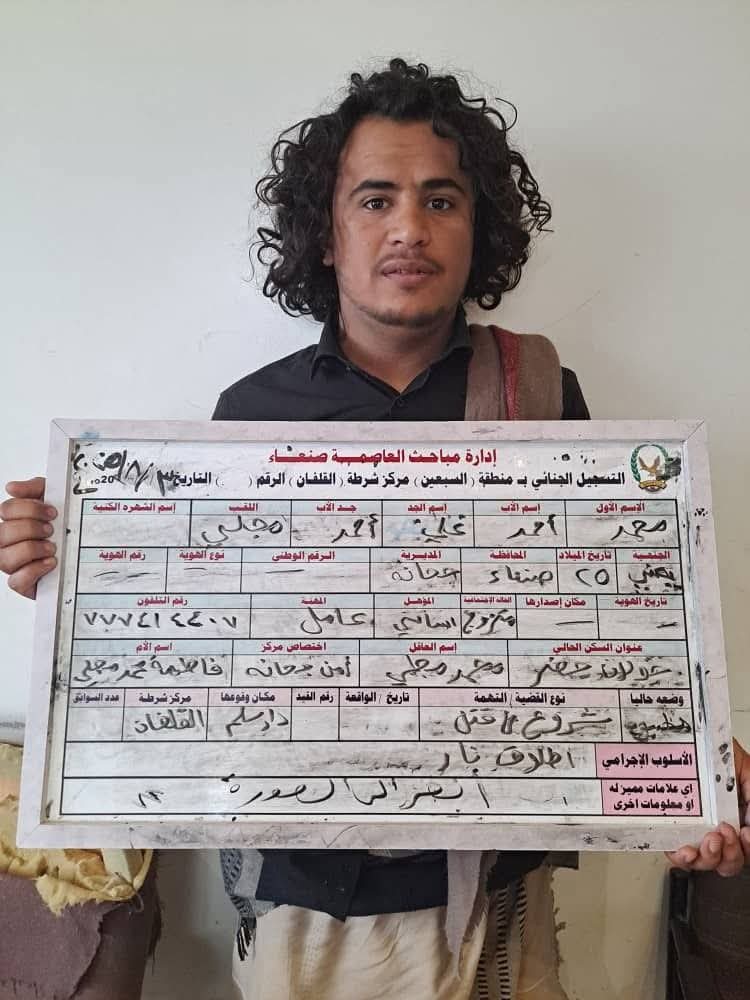 إدارة مباحث العاصمة صنعاء
التسجيل الجنائي بـ منطقة ( السبعين ) مركز شرطة ( القلفان ) الرقم ( ) التاريخ ٣ / ٨ / 20
الإسم الأول إسم الأب إسم الجد جد الأب اللقب إسم الشهره الكنية
محمد أحمد علي أحمد مجلي
الجنسية تاريخ الميلاد المحافظة المديرية الرقم الوطني نوع الهوية رقم الهوية
يمني ٢٥ صنعاء جحانة
تاريخ الهوية مكان إصدارها الحالة الإجتماعية المؤهل المهنة رقم التلفون
متزوج اساسي عامل ٧٧٧٤١٤٤٠٧
عنوان السكن الحالي إسم العاقل اختصاص مركز إسم الأم
محمد مجلي أمن جحانه فاطمة محمد مجلي
وضعه حاليا نوع القضية / التهمة تاريخ / الواقعة رقم القيد مكان وقوعها مركز شرطة عدد السوابق
مضبوط شروع في قتل دارسلم القلفان
الأسلوب الإجرامي اطلاق نار
اي علامات مميزه له او معلومات اخرى
انظر الى الصورة